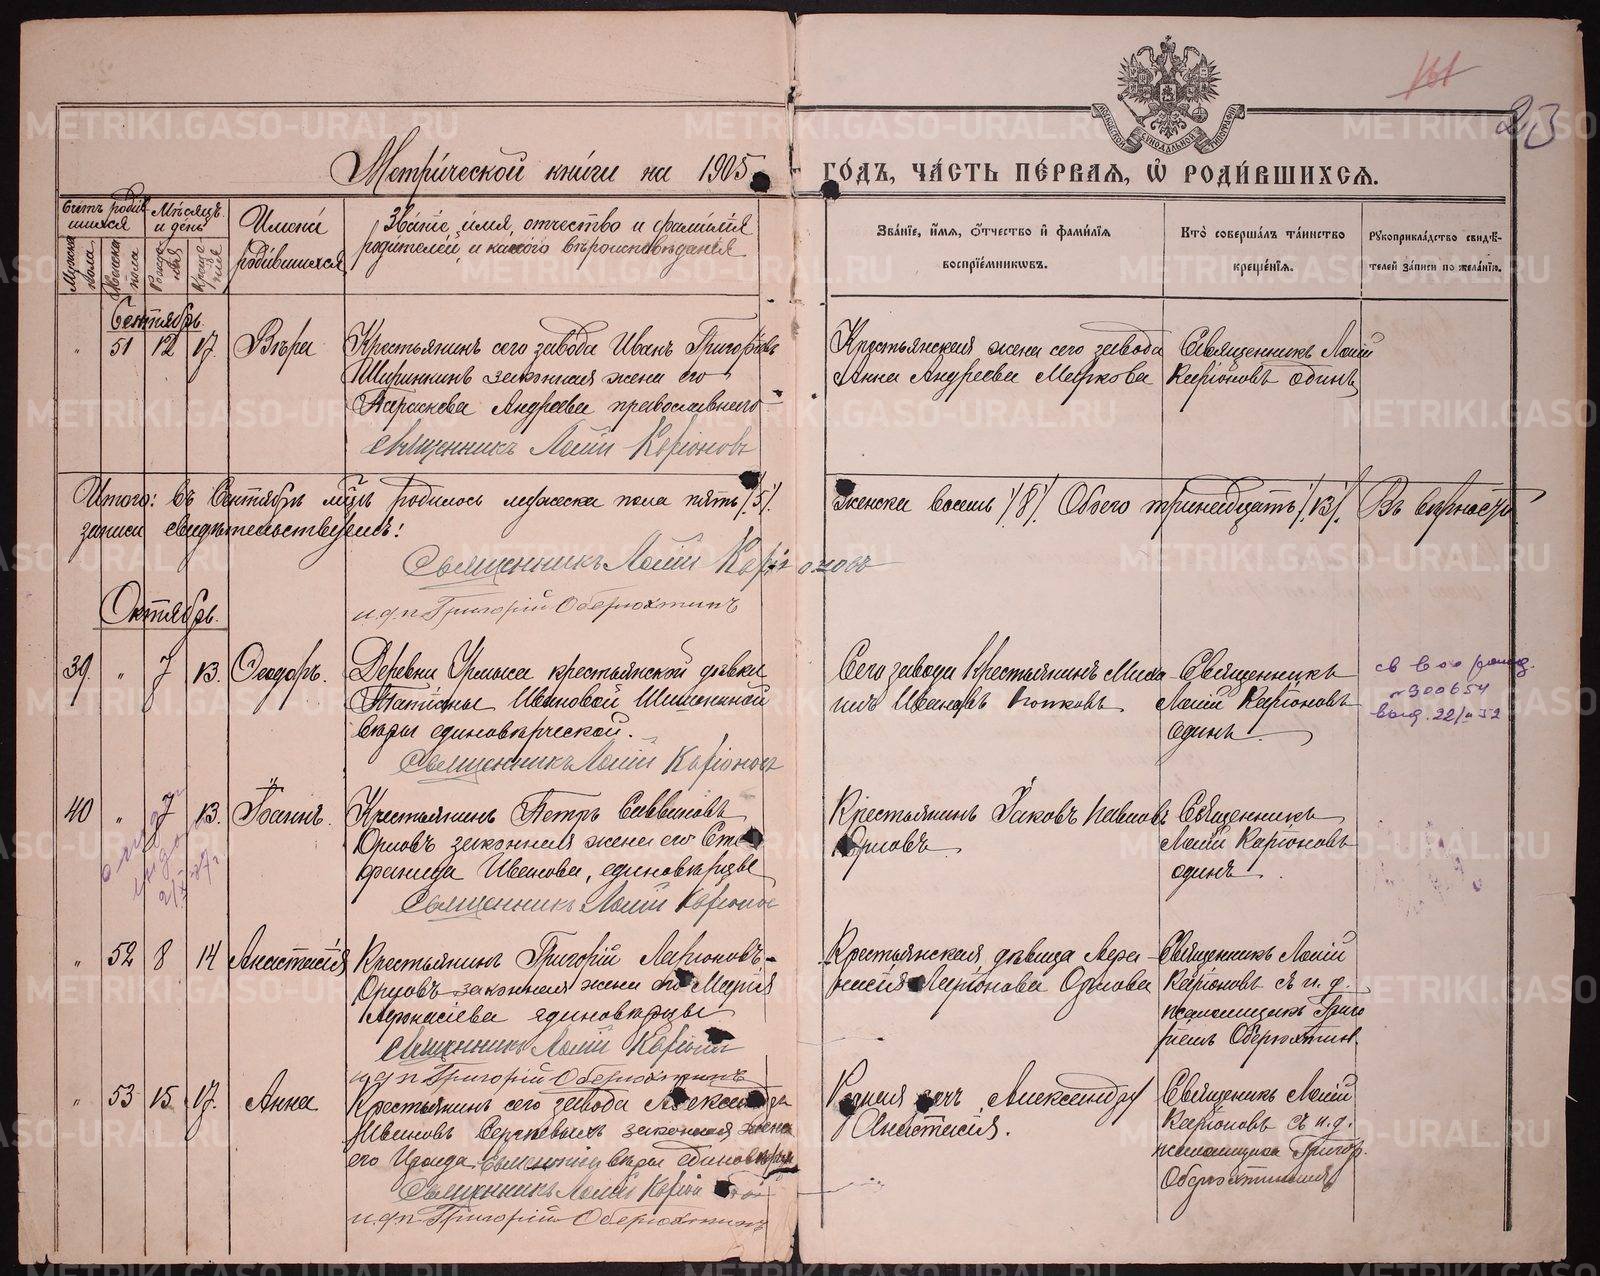 Метрической книги на 1905 годъ, часть первая, ѡ родившихся.
Счетъ родившихся
Мужеска пола
Женска пола
Мѣсяцъ и день
Рожденія
Крещенія
Имена родившихся
Званіе, имя, отчество и фамилія родителей, и какого вѣроисповѣданія
Званіе, имя, отчество и фамилія воспріемниковъ.
Кто совершалъ таинство крещенія.
Рукоприкладство свидѣтелей записи по желанію.
161
213
Сентябрь
" 51 12 17 Вѣра
Крестьянинъ сего завода Иванъ Григорьевъ
законная жена его
Параскева Андреева православнаго
Священникъ Каріоновъ
Крестьянская жена сего завода
Анна Андреева Маркова
Священникъ
Каріоновъ один
Итого: въ Сентябрѣ мцѣ родилось мужеска пола пять /5/. женска восемь /8/. Обоего тринадцать /13/. Въ вѣрности
записи свидѣтельствуемъ!
Священникъ Каріоновъ
и.д.п. Григорій Оберюхтинъ
Октябрь.
39 " 7 13. Ѳеодоръ.
Деревни крестьянской дѣвки
Татіаны Ивановой
вѣры единовѣрческой.
Священникъ Каріоновъ
Сего завода Крестьянинъ Миха-
илъ Ивановъ Попковъ
Священникъ
Каріоновъ
один
св во о рожд.
№300654
выд. 22/II 52
40 " 7 13. Іоаннъ.
Крестьянинъ Петръ Саввиновъ
Орловъ законная жена его Сте-
фанида Иванова, единовѣрцы
Священникъ Каріоновъ
Крестьянинъ Іаковъ Павловъ
Орловъ
Священникъ
Каріоновъ
один
" 52 8 14 Анастасія
Крестьянинъ Григорій Ларіоновъ
Орловъ законная жена его Марія
Афонасіева единовѣрцы
Священникъ Каріоновъ
и.д.п. Григорій Оберюхтинъ
Крестьянская дѣвица Афа-
насія Ларіонова Орлова
Священникъ
Каріоновъ съ и.д.
псаломщика Григо-
ріемъ Оберюхтин.
" 53 15 17. Анна
Крестьянинъ сего завода Александръ
Ивановъ законная жена
его вѣры единовѣрч
Священникъ Каріоновъ
и.д.п. Григорій Оберюхтинъ
дочь Александра
Анастасія.
Священникъ
Каріоновъ съ и.д.
псаломщика Григор.
Оберюхтинымъ
METRIKI.GASO-URAL.RU